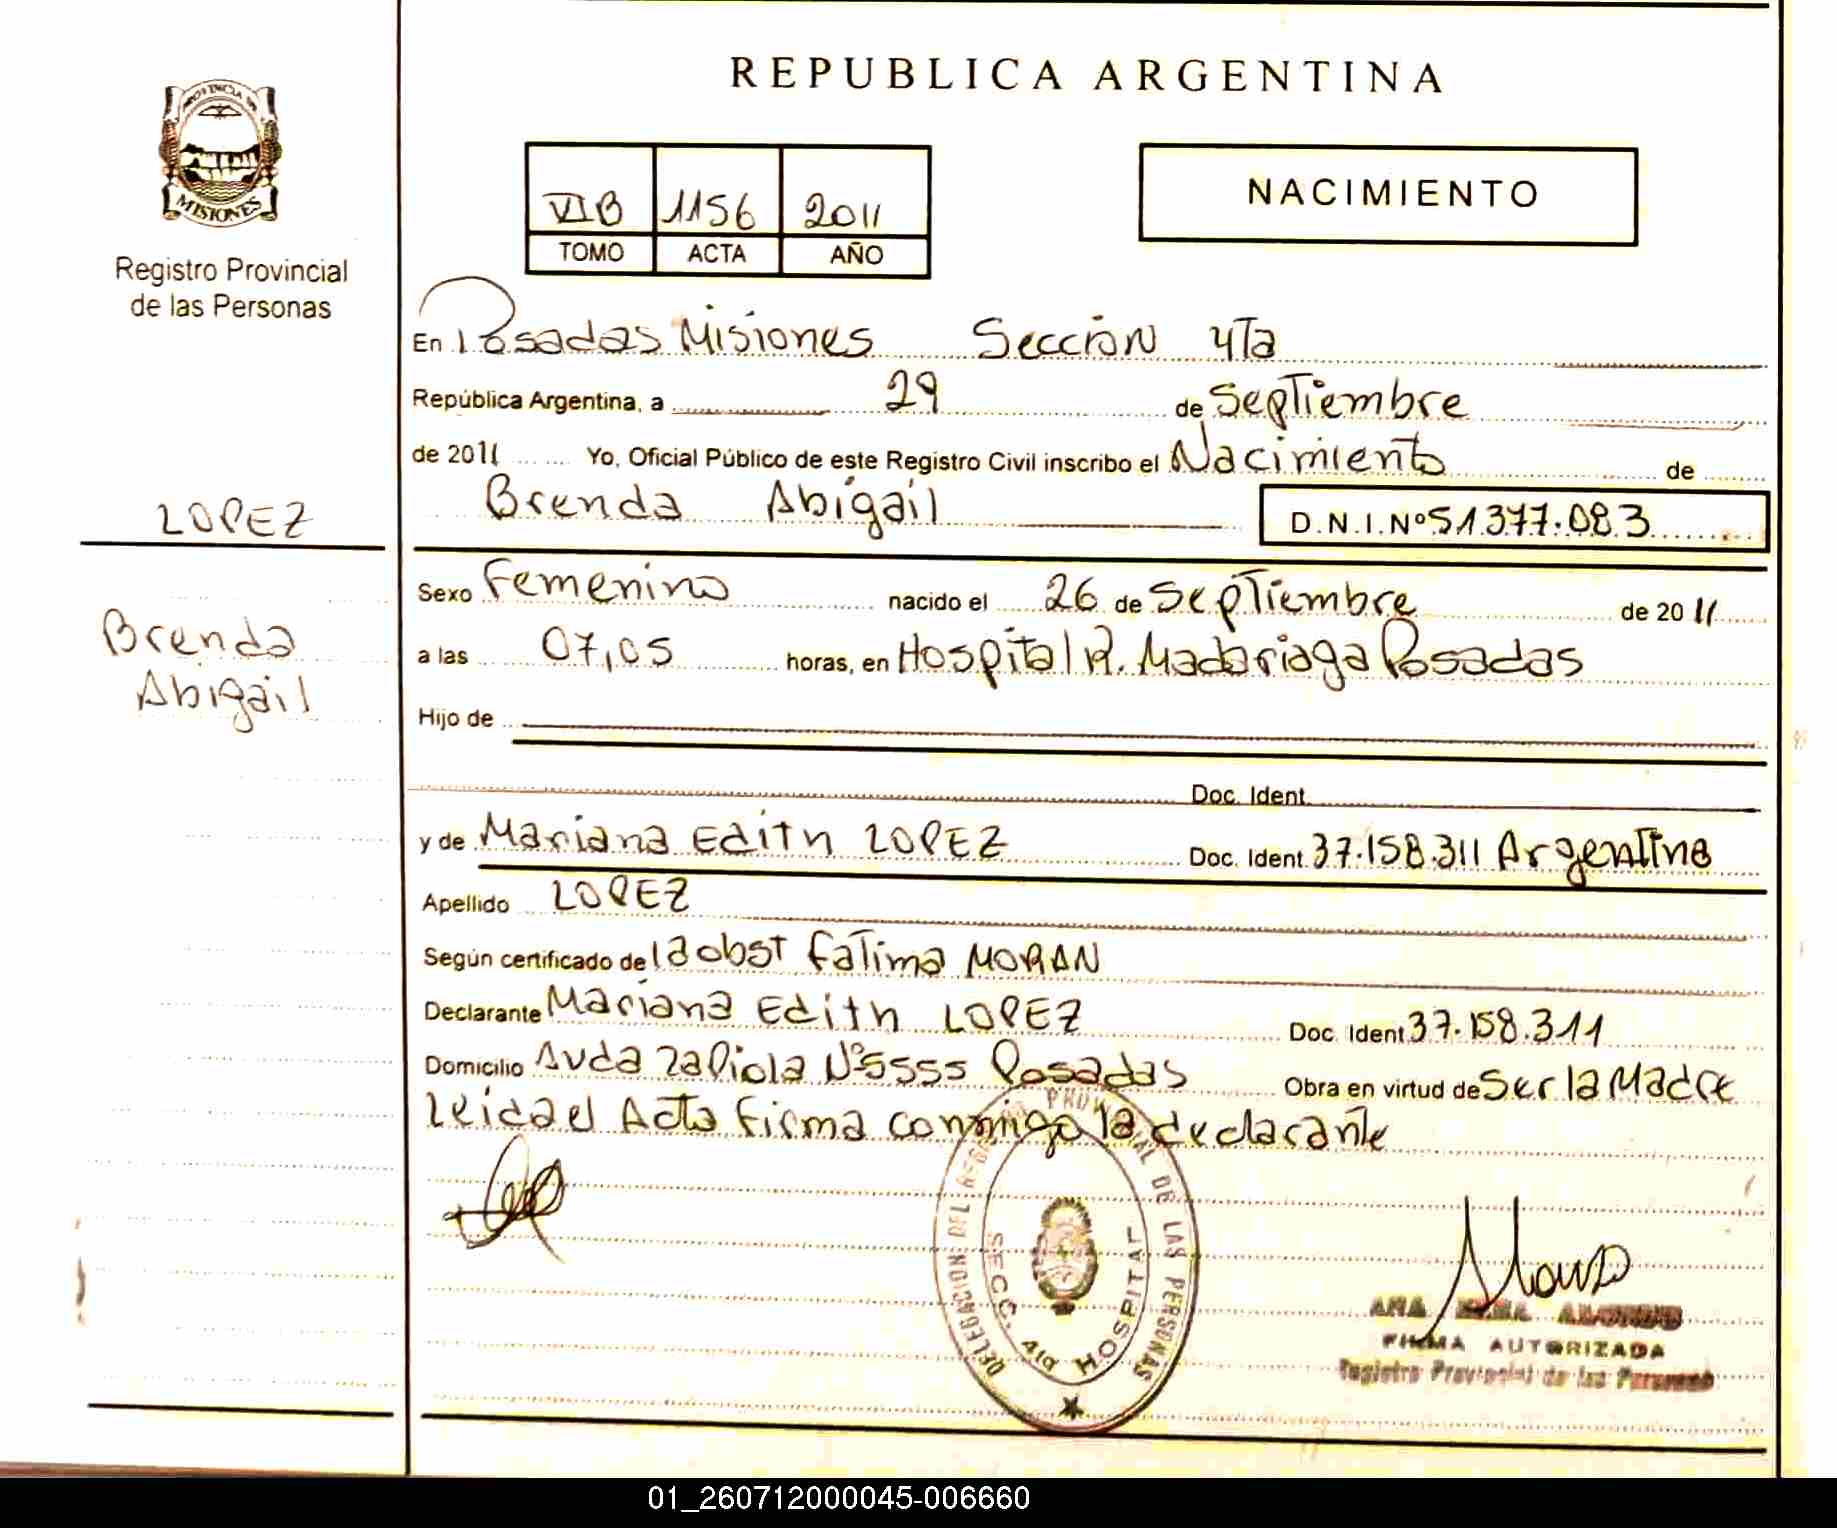 REPUBLICA ARGENTINA
PROVINCIA DE
MISIONES
Registro Provincial
de las Personas
VI B 1156 2011
TOMO ACTA AÑO
NACIMIENTO
En Posadas Misiones Sección 4Ta
República Argentina, a 29 de Septiembre
de 2011 Yo, Oficial Público de este Registro Civil inscribo el Nacimiento de
Brenda Abigail D.N.I.Nº 51.377.083
LOPEZ
Brenda
Abigail
Sexo Femenino nacido el 26 de Septiembre de 2011
a las 07,05 horas, en Hospital R. Madariaga Posadas
Hijo de
Doc. Ident.
y de Mariana Edith LOPEZ Doc. Ident. 37.158.311 Argentina
Apellido LOPEZ
Según certificado de la obst Fatima MORAN
Declarante Mariana Edith LOPEZ Doc. Ident 37.158.311
Domicilio Avda Zapiola Nº5555 Posadas Obra en virtud de Ser la Madre
Leida el Acta Firma conmigo la declarante
DELEGACION DEL REGISTRO PROVINCIAL DE LAS PERSONAS
SECC. 4ta HOSPITAL
ANA ALONSO
FIRMA AUTORIZADA
Registro Provincial de las Personas
01_260712000045-006660